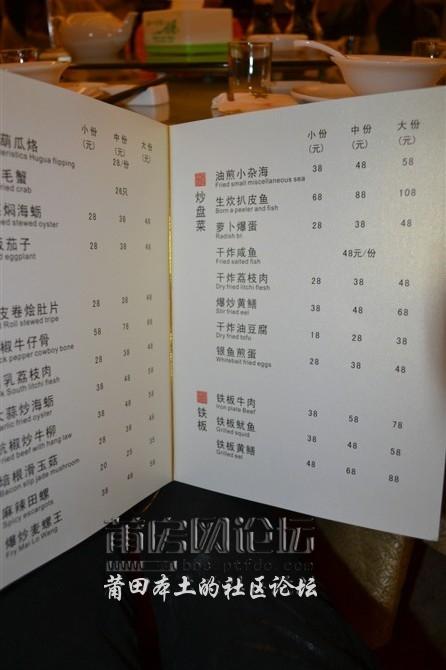 小份 中份 大份
(元) (元) (元)
葫瓜烙 28/份
毛蟹 28只
fried crab
焖海蛎
stewed oyster
28 38 48
茄子
eggplant
28 38 48
皮卷烩肚片
Roll stewed tripe
28 38 48
椒牛仔骨
pepper cowboy bone
58 78 88
乳荔枝肉
South litchi flesh
28 38 48
蒜炒海蛎
garlic fried oyster
38 48
杭椒炒牛柳
beef with hang law
38 48
培根滑玉菇
Bacon slip jade mushroom
20 25
麻辣田螺
Spicy escargots
38 48 58
爆炒麦螺王
Fry Mai Lo Wang
小份 中份 大份
(元) (元) (元)
炒盘菜
油煎小杂海 38 48 58
Fried small miscellaneous sea
生炊扒皮鱼 68 88 108
Born a peeler and fish
萝卜爆蛋 28 38 48
Radish bl
干炸咸鱼 48元/份
Fried salted fish
干炸荔枝肉 28 38 48
Dry fried litchi flesh
爆炒黄鳝 38 48 68
Stir fried eel
干炸油豆腐 18 28 38
Dry fried tofu
银鱼煎蛋 28 38 48
Whitebait fried eggs
铁板
铁板牛肉 38 58 78
Iron plate Beef
铁板鱿鱼 38 48 58
Grilled squid
铁板黄鳝 48 68 88
Grilled eel
莆房网论坛
bbs.ptfdc.com
莆田本土的社区论坛